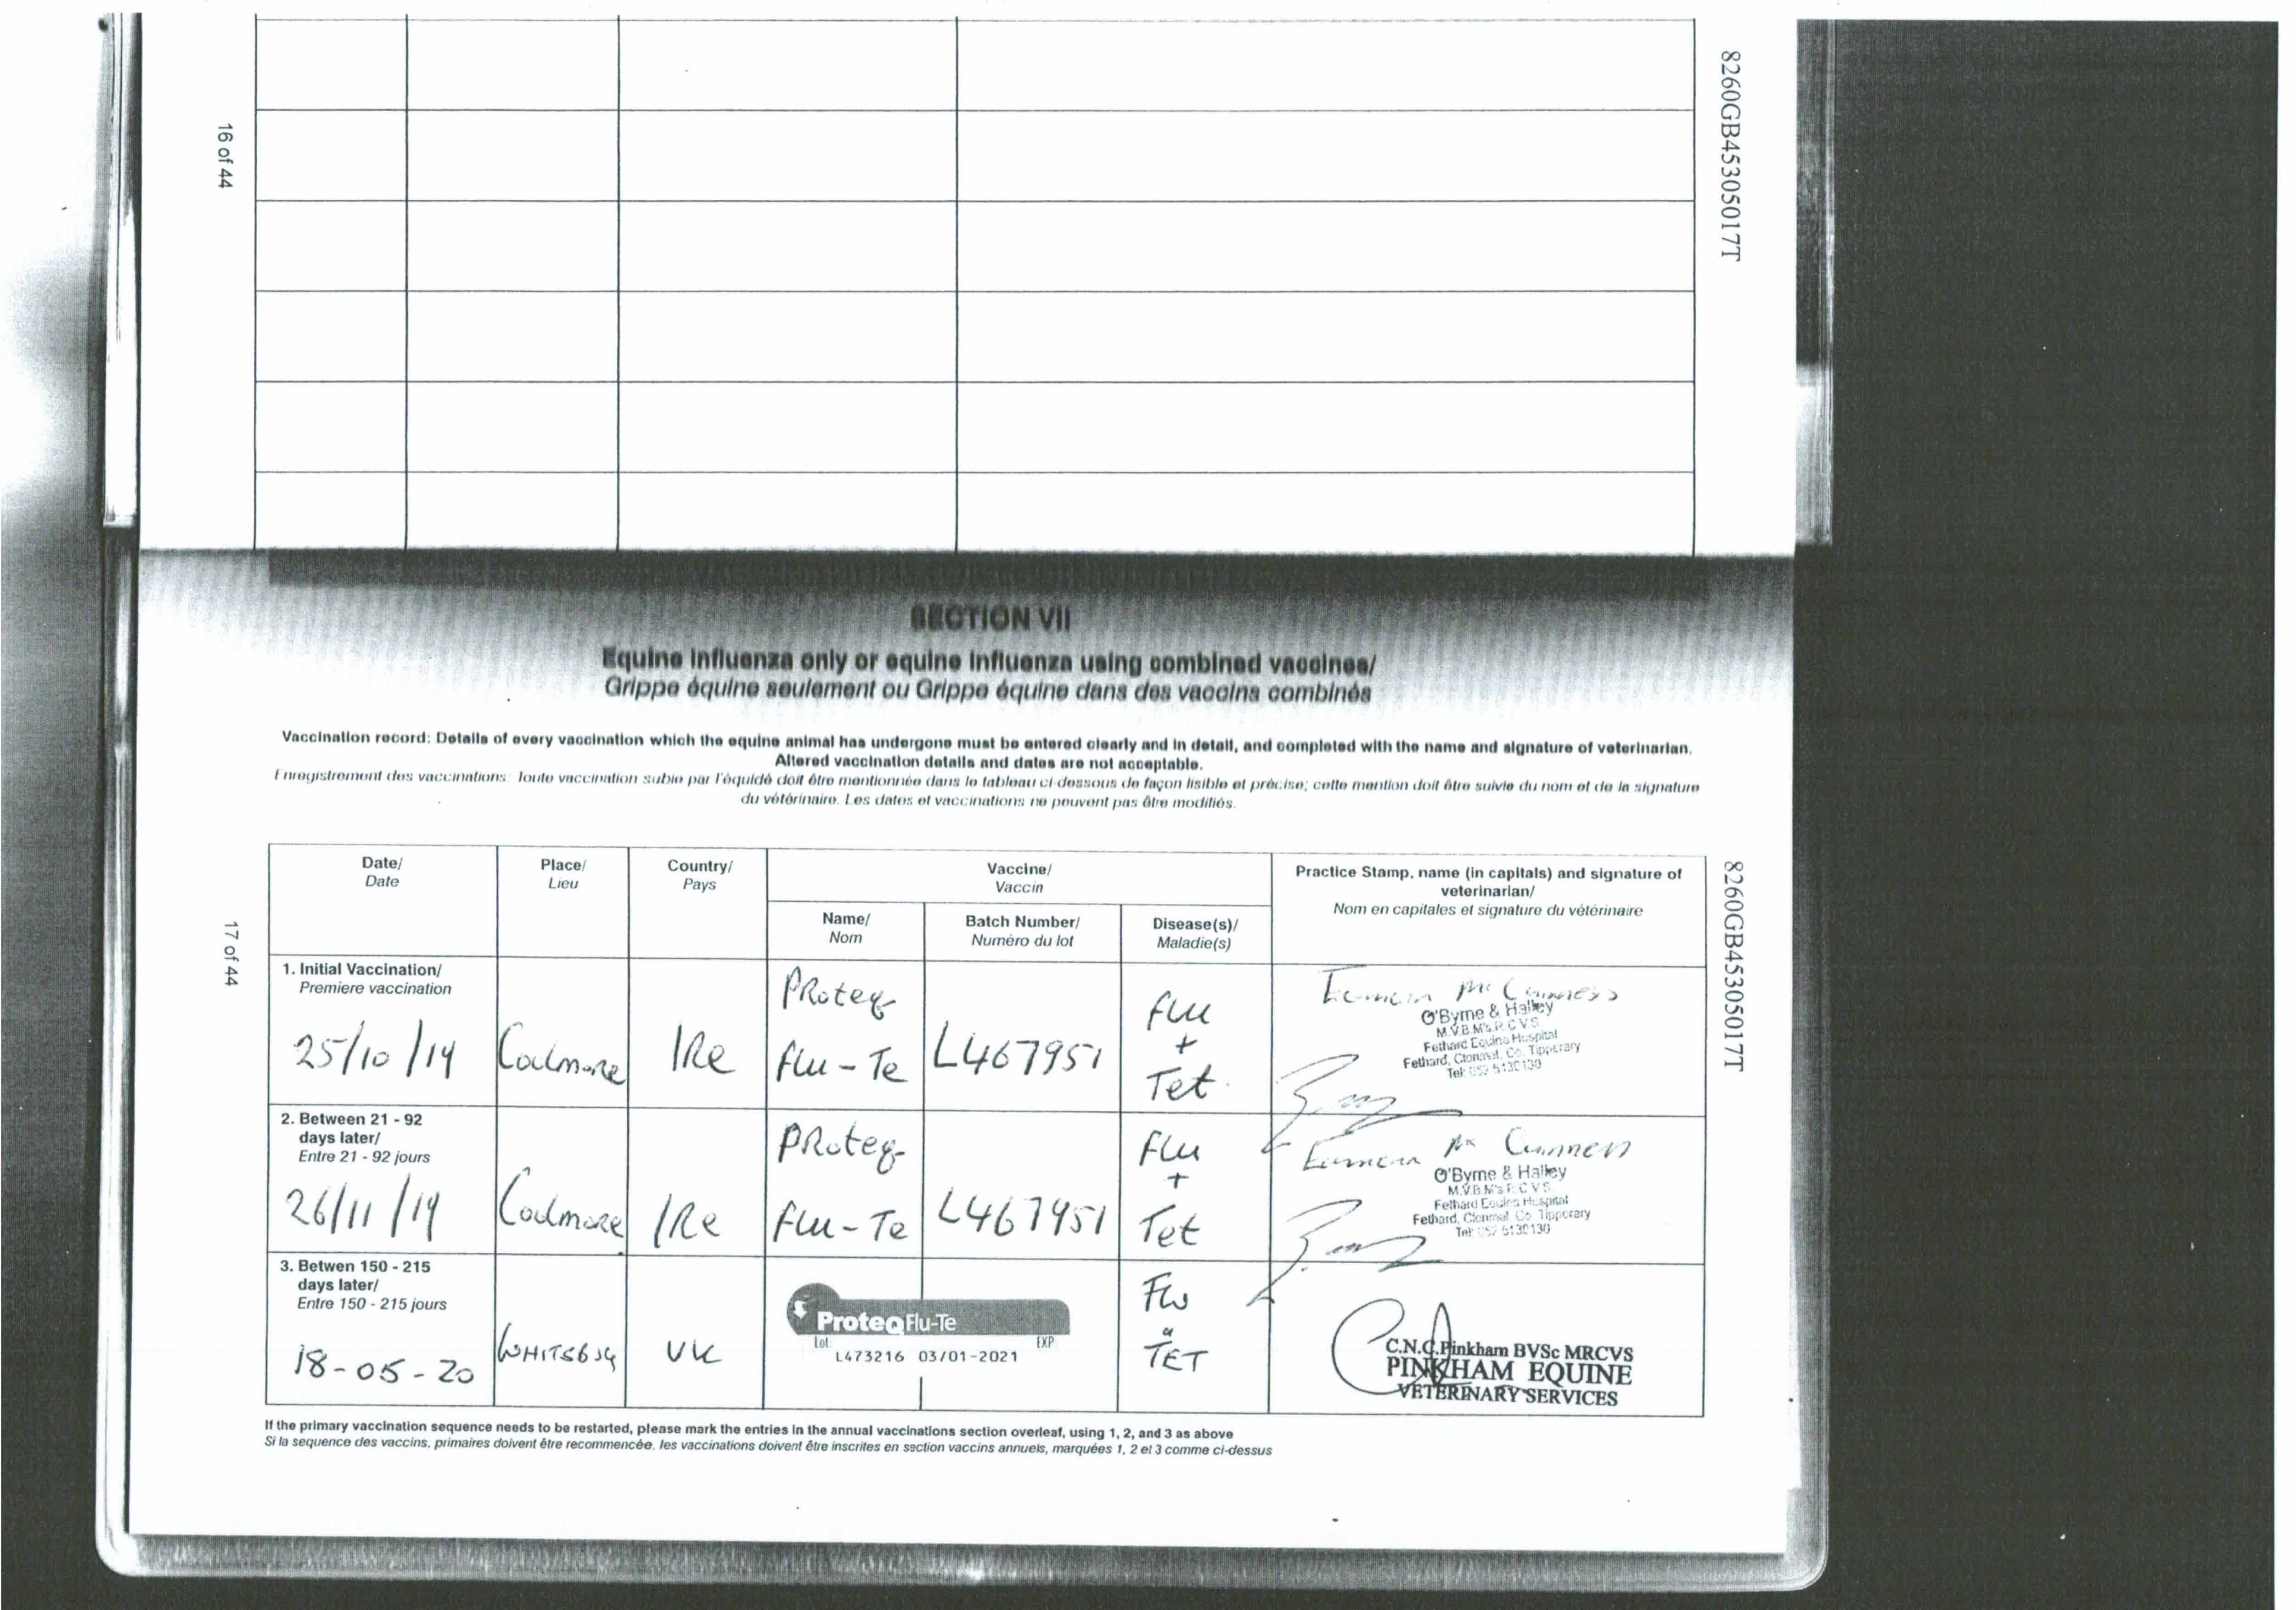 16 of 44
8260GB45305017T
SECTION VII
Equine influenza only or equine influenza using combined vaccines/
Grippe équine seulement ou Grippe équine dans des vaccins combinés
Vaccination record: Details of every vaccination which the equine animal has undergone must be entered clearly and in detail, and completed with the name and signature of veterinarian.
Altered vaccination details and dates are not acceptable.
Enregistrement des vaccinations: Toute vaccination subie par l'équidé doit être mentionnée dans le tableau ci-dessous de façon lisible et précise; cette mention doit être suivie du nom et de la signature
du vétérinaire. Les dates et vaccinations ne peuvent pas être modifiés.
17 of 44
8260GB45305017T
Date/
Date
Place/
Lieu
Country/
Pays
Vaccine/
Vaccin
Name/
Nom
Batch Number/
Numéro du lot
Disease(s)/
Maladie(s)
Practice Stamp, name (in capitals) and signature of
veterinarian/
Nom en capitales et signature du vétérinaire
1. Initial Vaccination/
Premiere vaccination
25/10/19
Coolmore
IRe
PRoteq
flu-Te
L467951
flu
+
Tet.
O'Byrne & Halley
M.V.B.M's.R.C.V.S.
Fethard Equine Hospital
Fethard, Clonmel, Co. Tipperary
Tel: 052 6130130
2. Between 21 - 92
days later/
Entre 21 - 92 jours
26/11/19
Coolmore
IRe
PRoteq
flu-Te
L467951
flu
+
Tet
O'Byrne & Halley
M.V.B.M's.R.C.V.S.
Fethard Equine Hospital
Fethard, Clonmel, Co. Tipperary
Tel: 052 6130130
3. Betwen 150 - 215
days later/
Entre 150 - 215 jours
18-05-20
WHITSBURY
UK
ProteqFlu-Te
Lot: EXP.
L473216 03/01-2021
Flu
TET
C.N.C.Pinkham BVSc MRCVS
PINKHAM EQUINE
VETERINARY SERVICES
If the primary vaccination sequence needs to be restarted, please mark the entries in the annual vaccinations section overleaf, using 1, 2, and 3 as above
Si la sequence des vaccins, primaires doivent être recommencée, les vaccinations doivent être inscrites en section vaccins annuels, marquées 1, 2 et 3 comme ci-dessus